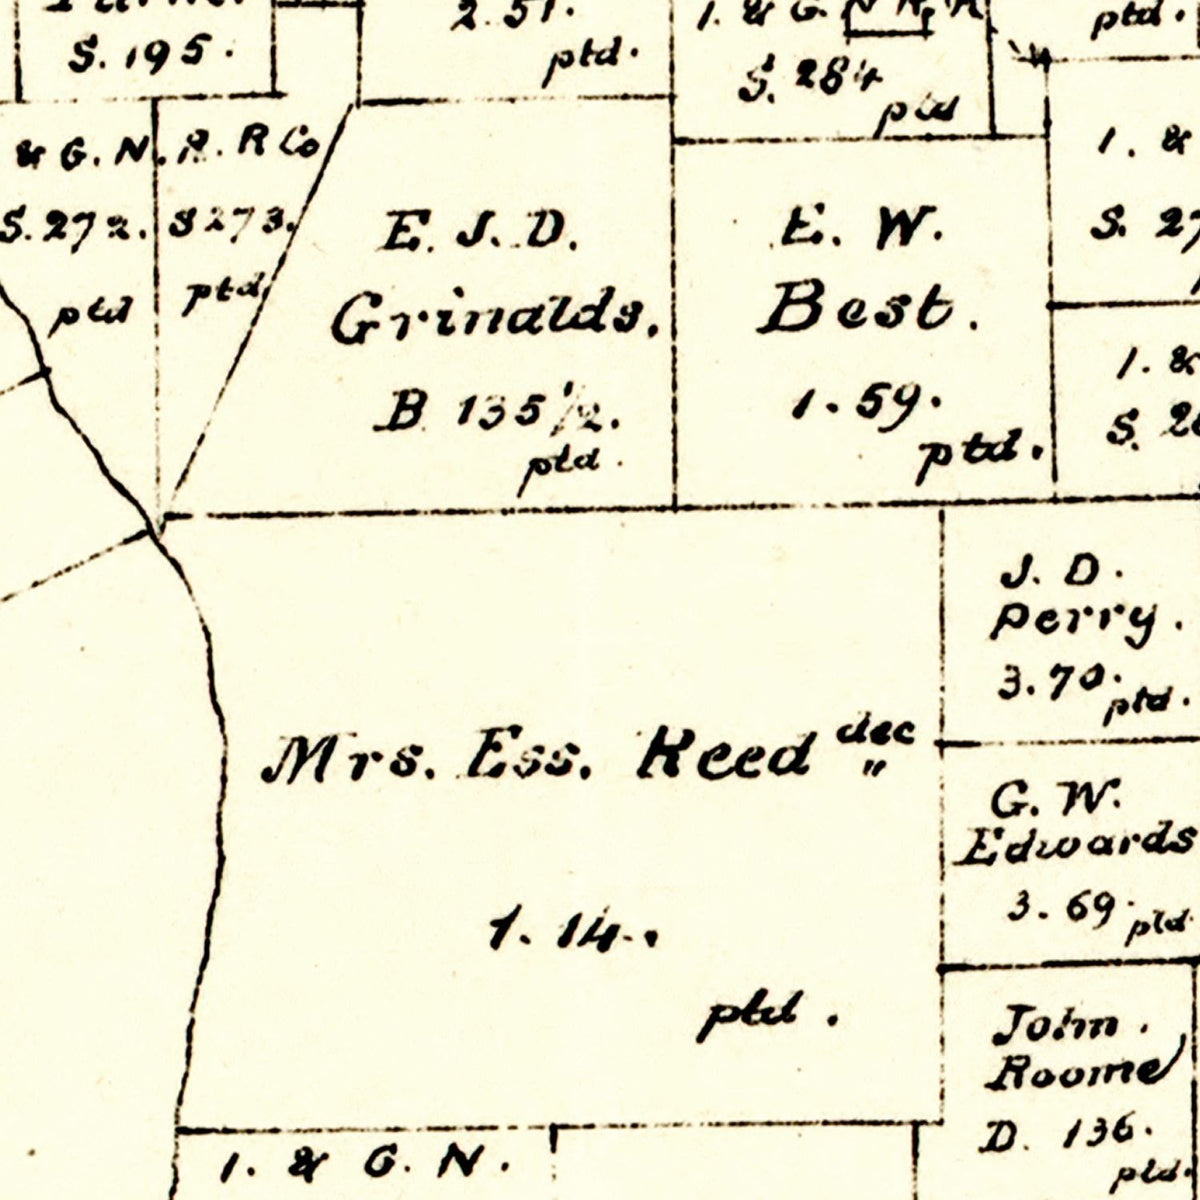 S. 195.
2. 51.
ptd.
1. & G. N R. R
S. 284
ptd
ptd.
& G. N. R. R Co
S. 272.
ptd
S 273.
ptd
E. J. D.
Grinalds.
B 135 1/2.
ptd.
E. W.
Best.
1. 59.
ptd.
1. &
S. 27
1. &
S.
J. D.
Perry.
3. 70.
ptd.
Mrs. Ess. Reed dec
"
1. 14.
ptd.
G. W.
Edwards
3. 69.
ptd
John.
Roome
D. 136.
ptd.
1. & G. N.